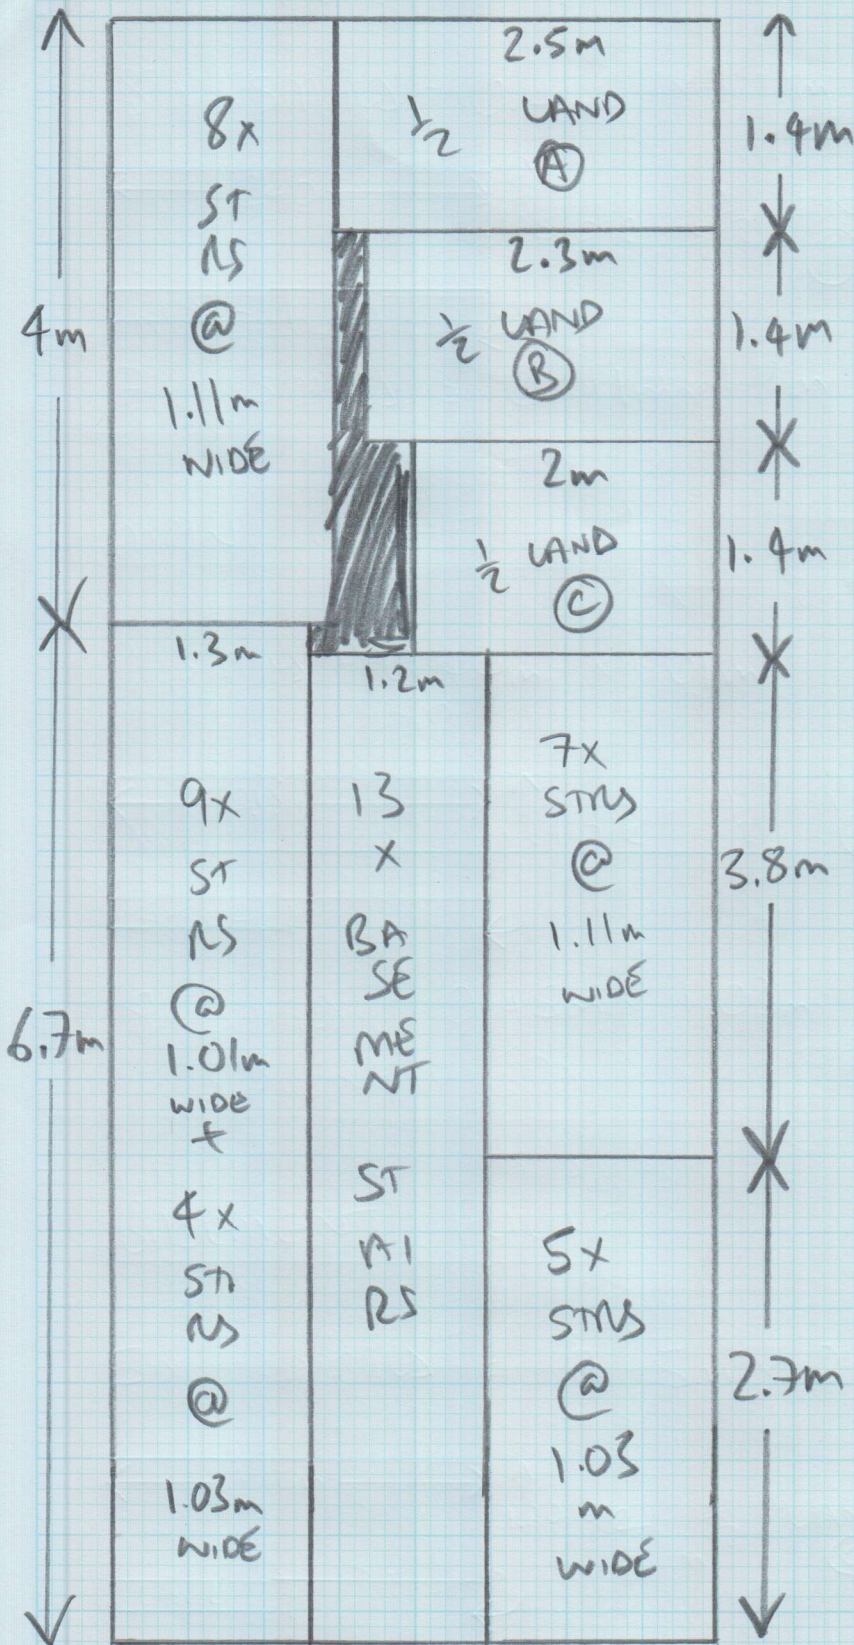 4m
6.7m
8x
ST
RS
@
1.11m
WIDE
2.5m
½ LAND
A
1.4m
2.3m
½ LAND
B
1.4m
2m
½ LAND
C
1.4m
1.3m
9x
ST
RS
@
1.01m
WIDE
+
4x
ST
RS
@
1.03m
WIDE
1.2m
13
x
BA
SE
ME
NT
ST
AI
RS
7x
STRS
@
1.11m
WIDE
3.8m
5x
STRS
@
1.03
m
WIDE
2.7m